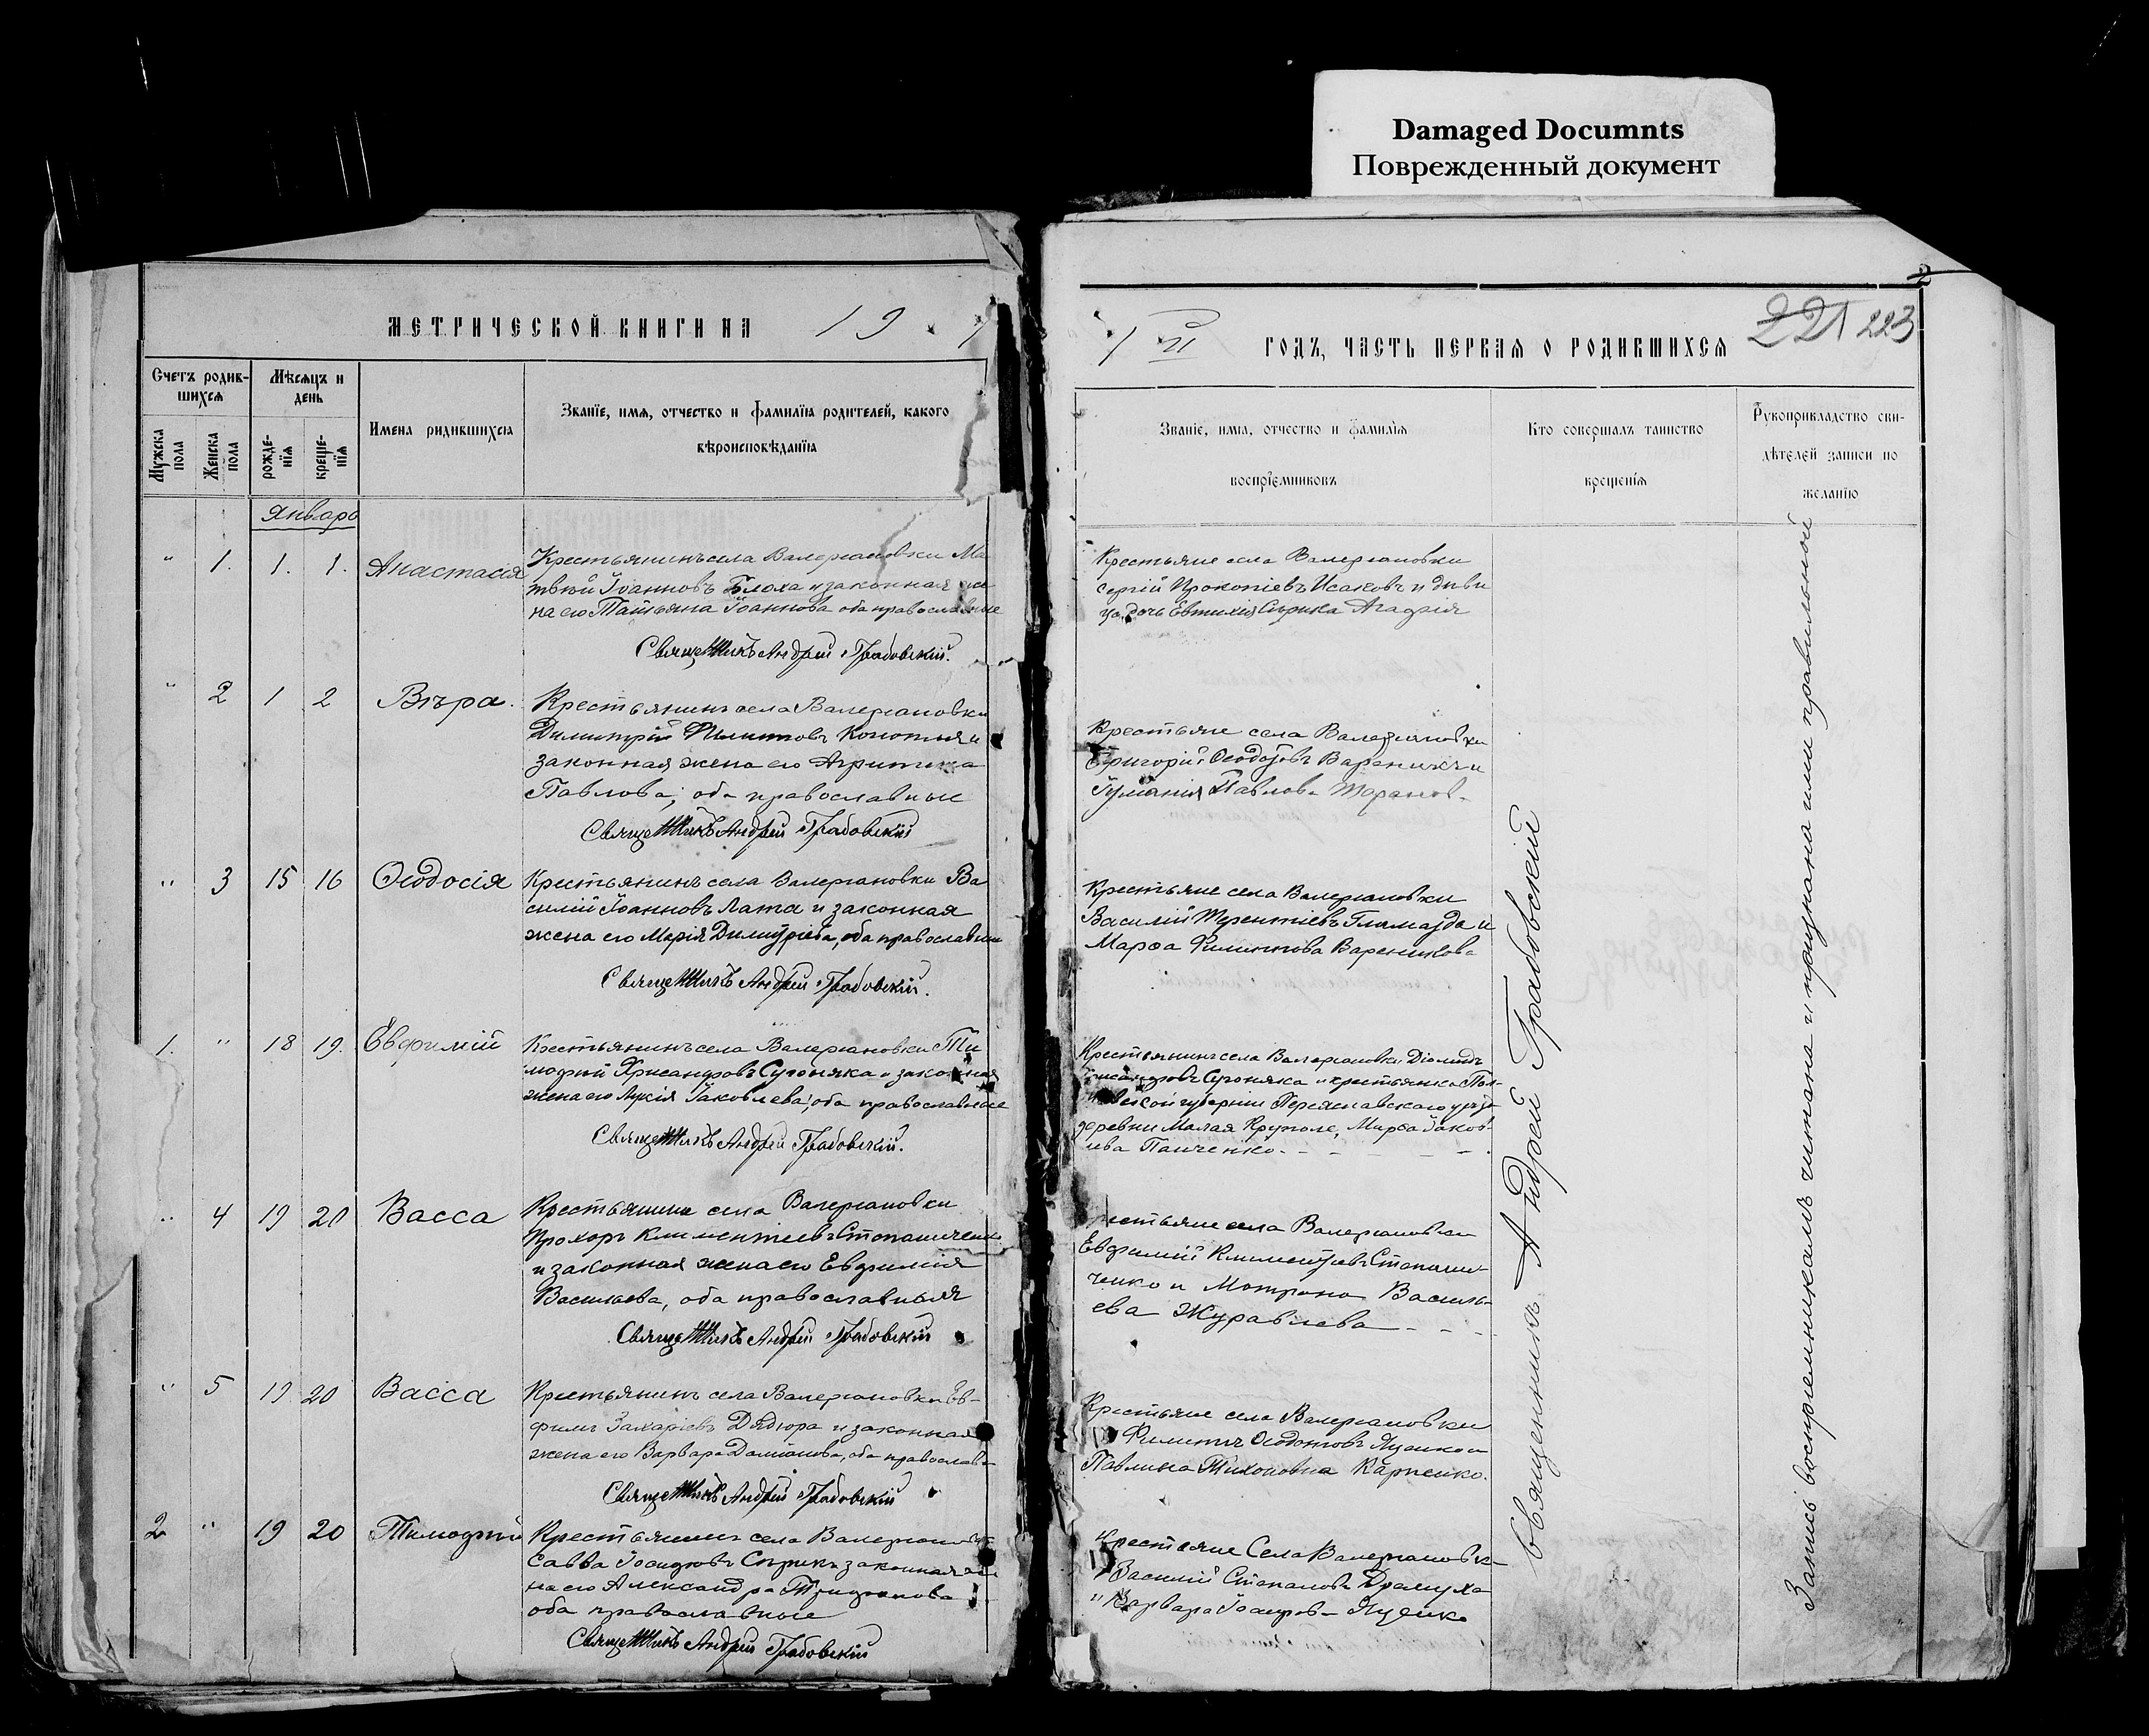 Damaged Documnts
Поврежденный документ
МЕТРИЧЕСКОЙ КНИГИ НА 19 1
Счетъ родив-
шихся
Мѣсяцъ и
день
Мужска
пола
Женска
пола
рожде-
нія
креще-
нія
Имена родившихся
Званіе, имя, отчество и фамилія родителей, какого
вѣроисповѣданія
Январь
" 1. 1. 1. Анастасія
Крестьянинъ села Валеріановки Ма
твѣй Іоанновъ Блоха и законная же
на его Татьяна Іоаннова оба православные
Священникъ Андрей Грабовскій.
" 2 1 2 Вѣра.
Крестьянинъ села Валеріановки
Димитрій Филиповъ и
законная жена его Агрипина
Павлова, оба православные
Священникъ Андрей Грабовскій
" 3 15 16 Ѳеодосія
Крестьянинъ села Валеріановки Ва
силій Іоанновъ Лата и законная
жена его Марія Димитріева, оба православные
Священникъ Андрей Грабовскій.
1. " 18 19. Евфимій
Крестьянинъ села Валеріановки Ти
мофей Хрисанфовъ Сугоняка и законная
жена его Лукія Іаковлева, оба православные
Священникъ Андрей Грабовскій.
" 4 19 20 Васса
Крестьянинъ села Валеріановки
Прохоръ Климентіевъ
и законная жена его Евфимія
Васильева, оба православныя
Священникъ Андрей Грабовскій
" 5 19 20 Васса
Крестьянинъ села Валеріановки Ев-
фимъ Захаріевъ Дядюра и законная
жена его Варвара Даміанова, оба православ
Священникъ Андрей Грабовскій
2 " 19 20 Тимофей
Крестьянинъ села Валеріановки
Савва Іосифовъ Сѣрикъ законная же
на его Александра Трифонова
оба православные
Священникъ Андрей Грабовскій
2
1 й ГОДЪ, ЧАСТЬ ПЕРВАЯ О РОДИВШИХСЯ 221 223
Званіе, имя, отчество и фамилія
воспріемниковъ
Кто совершалъ таинство
крещенія
Рукоприкладство сви-
дѣтелей записи по
желанію
Крестьяне села Валеріановки
Сергій Прокопіевъ Исаковъ и дѣви
ца, дочь Евтихія Сѣрика Агафія
Крестьяне села Валеріановки
Григорій Ѳеодотовъ и
Павлова
Крестьяне села Валеріановки
Василій Терентіевъ Гламазда и
Марѳа Филиппова Вареникова
Крестьянинъ села Валеріановки Діомидъ
Хрисанфовъ Сугоняка и крестьянка Пол-
тавской губерніи Переяславскаго уѣзда
деревни Малая Круполе, Марѳа Іаков-
лева Панченко
Крестьяне села Валеріановки
Евфимій Климентіевъ
и Матрона Василь-
ева Журавлева
Крестьяне села Валеріановки
Филиппъ Ѳеодотовъ Яценко и
Павлина Тихоновна Карпенко.
Крестьяне Села Валеріановки
Василій Степановъ Драмуха
и Варвара Іосифова Яценко
Священникъ Андрей Грабовскій
Запись воспріемникамъ читана и признана ими правильной